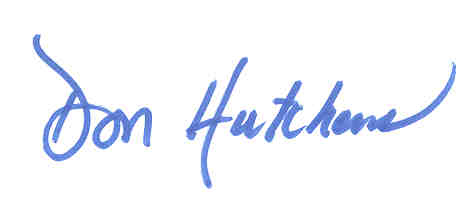 Don Hutchens